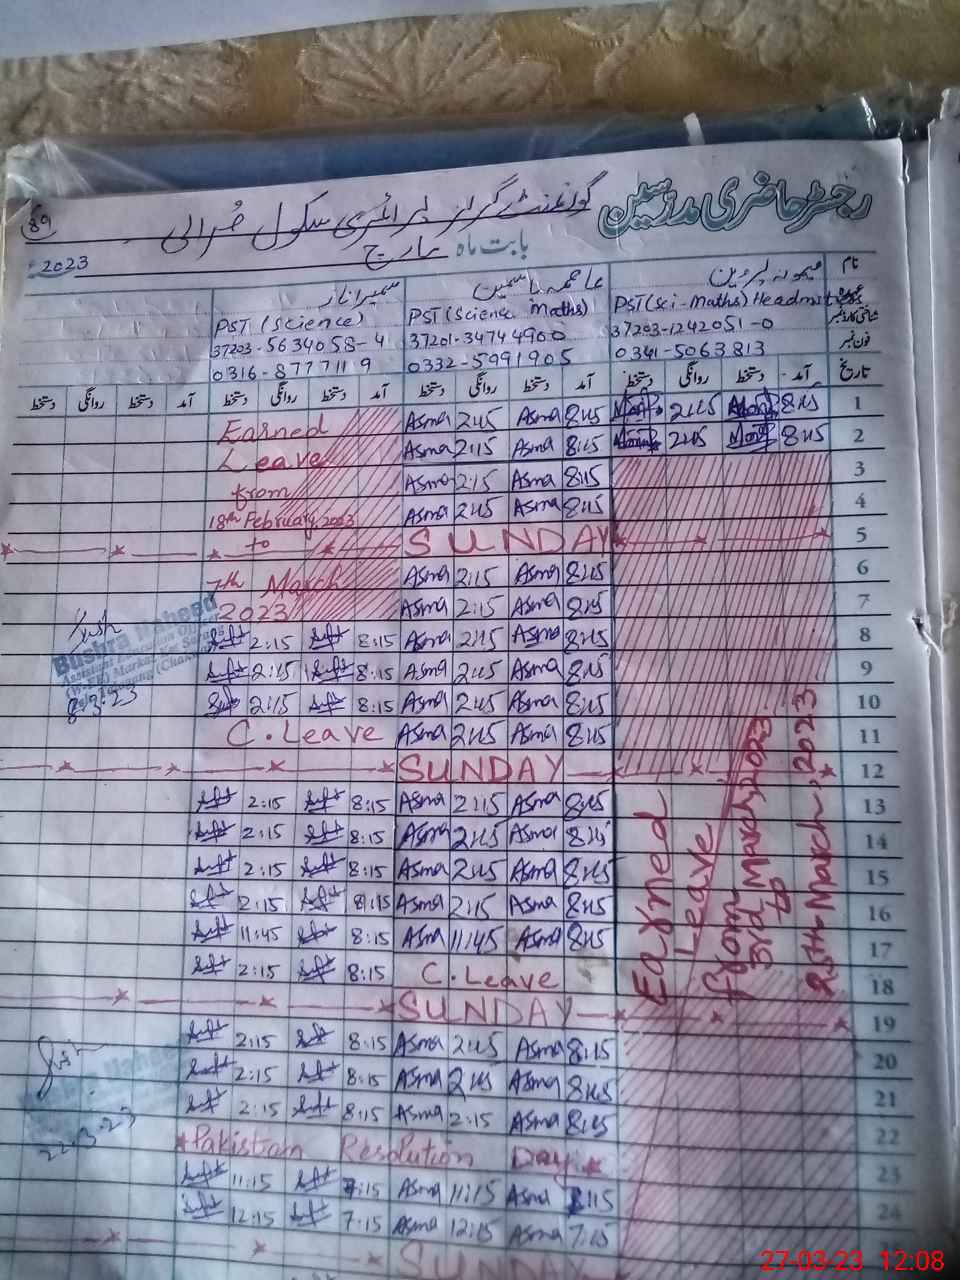 رجسٹر حاضری مدرسین
گورنمنٹ گرلز پرائمری سکول
89
بابت ماہ مارچ
2023
نام
میمونہ پروین
عاصمہ یاسمین
سمیرا ناز
PST(Sci-Maths) Headmistress
PST (Science Maths)
PST (Science)
شناختی کارڈ نمبر
37203-1242051-0
37201-3474490-0
37203-5634058-4
فون نمبر
0341-5063813
0332-5991905
0316-8777119
تاریخ
آمد دستخط روانگی دستخط آمد دستخط روانگی دستخط آمد دستخط روانگی دستخط آمد دستخط روانگی دستخط
1 8:15 2:15 8:15 Asma 2:15 Asma Earned
2 8:15 2:15 8:15 Asma 2:15 Asma Leave
3 8:15 Asma 2:15 Asma from
4 8:15 Asma 2:15 Asma 18th February, 2023
5 SUNDAY to
6 8:15 Asma 2:15 Asma 7th March
7 8:15 Asma 2:15 Asma 2023
8 8:15 Asma 2:15 Asma 8:15 2:15
9 8:15 Asma 2:15 Asma 8:15 2:15
10 8:15 Asma 2:15 Asma 8:15 2:15
11 8:15 Asma 2:15 Asma C. Leave
12 SUNDAY
13 8:15 Asma 2:15 Asma 8:15 2:15
14 8:15 Asma 2:15 Asma 8:15 2:15
15 8:15 Asma 2:15 Asma 8:15 2:15
16 8:15 Asma 2:15 Asma 8:15 2:15
17 8:15 Asma 11:45 Asma 8:15 11:45
18 C. Leave 8:15 2:15
19 SUNDAY
20 8:15 Asma 2:15 Asma 8:15 2:15
21 8:15 Asma 2:15 Asma 8:15 2:15
22 8:15 Asma 2:15 Asma 8:15 2:15
23 Pakistan Resolution Day
24 Asma 11:15 Asma 7:15 11:15
7:15 Asma 12:15 Asma 7:15 12:15
SUNDAY
Earned
Leave
from
3rd March, 2023
to
March, 2023
Bushra Naheed
Assistant Education Officer
(W-EE) Markaz
8-3-23
22-3-23
27-03-23 12:08